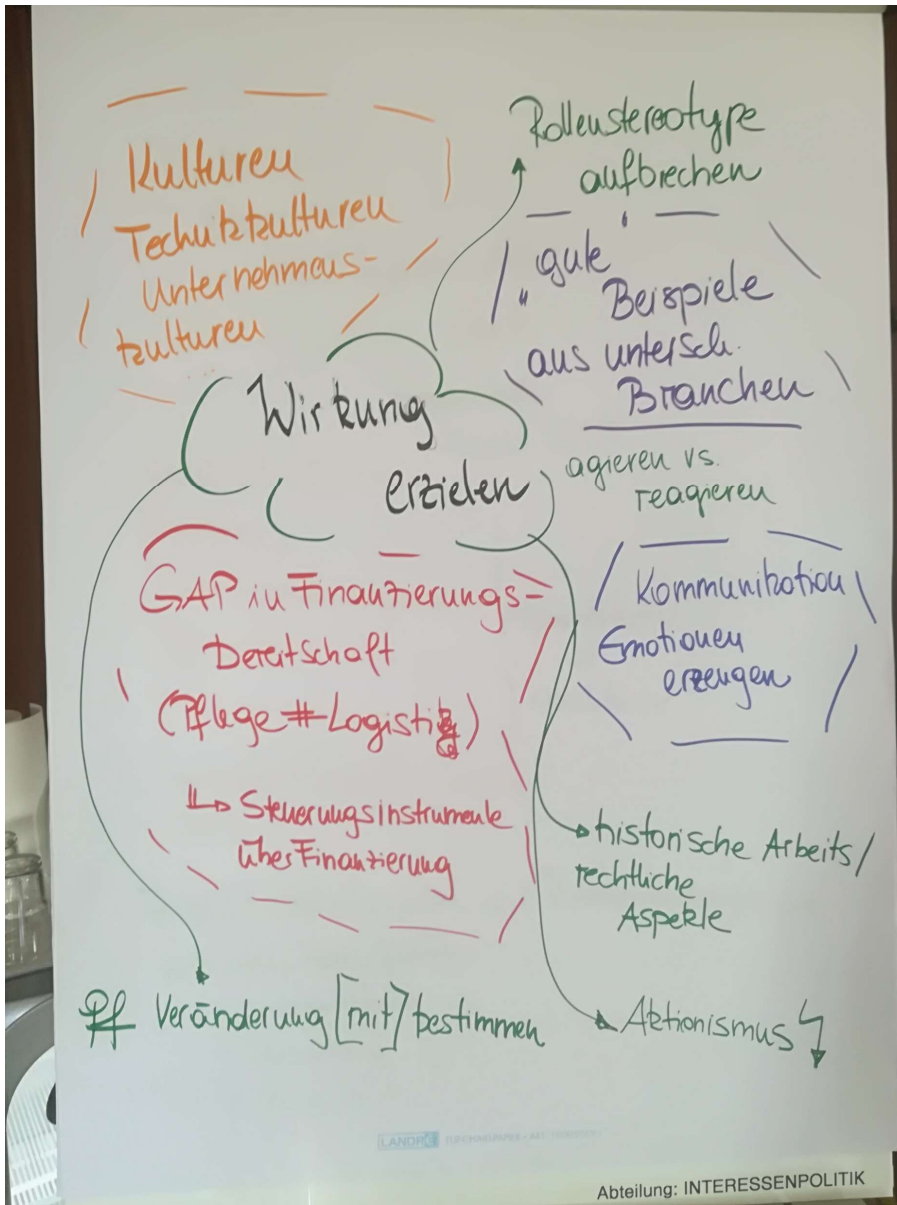 Kulturen
Technikkulturen
Unternehmens-
kulturen
Rollenstereotype
aufbrechen
"gute"
Beispiele
aus untersch.
Branchen
Wirkung
erzielen
agieren vs.
reagieren
GAP in Finanzierungs-
bereitschaft
(Pflege # Logistik)
Steuerungsinstrumente
über Finanzierung
Kommunikation
Emotionen
erzeugen
historische Arbeits/
rechtliche
Aspekte
Veränderung [mit] bestimmen
Aktionismus
LANDRÉ
Abteilung: INTERESSENPOLITIK